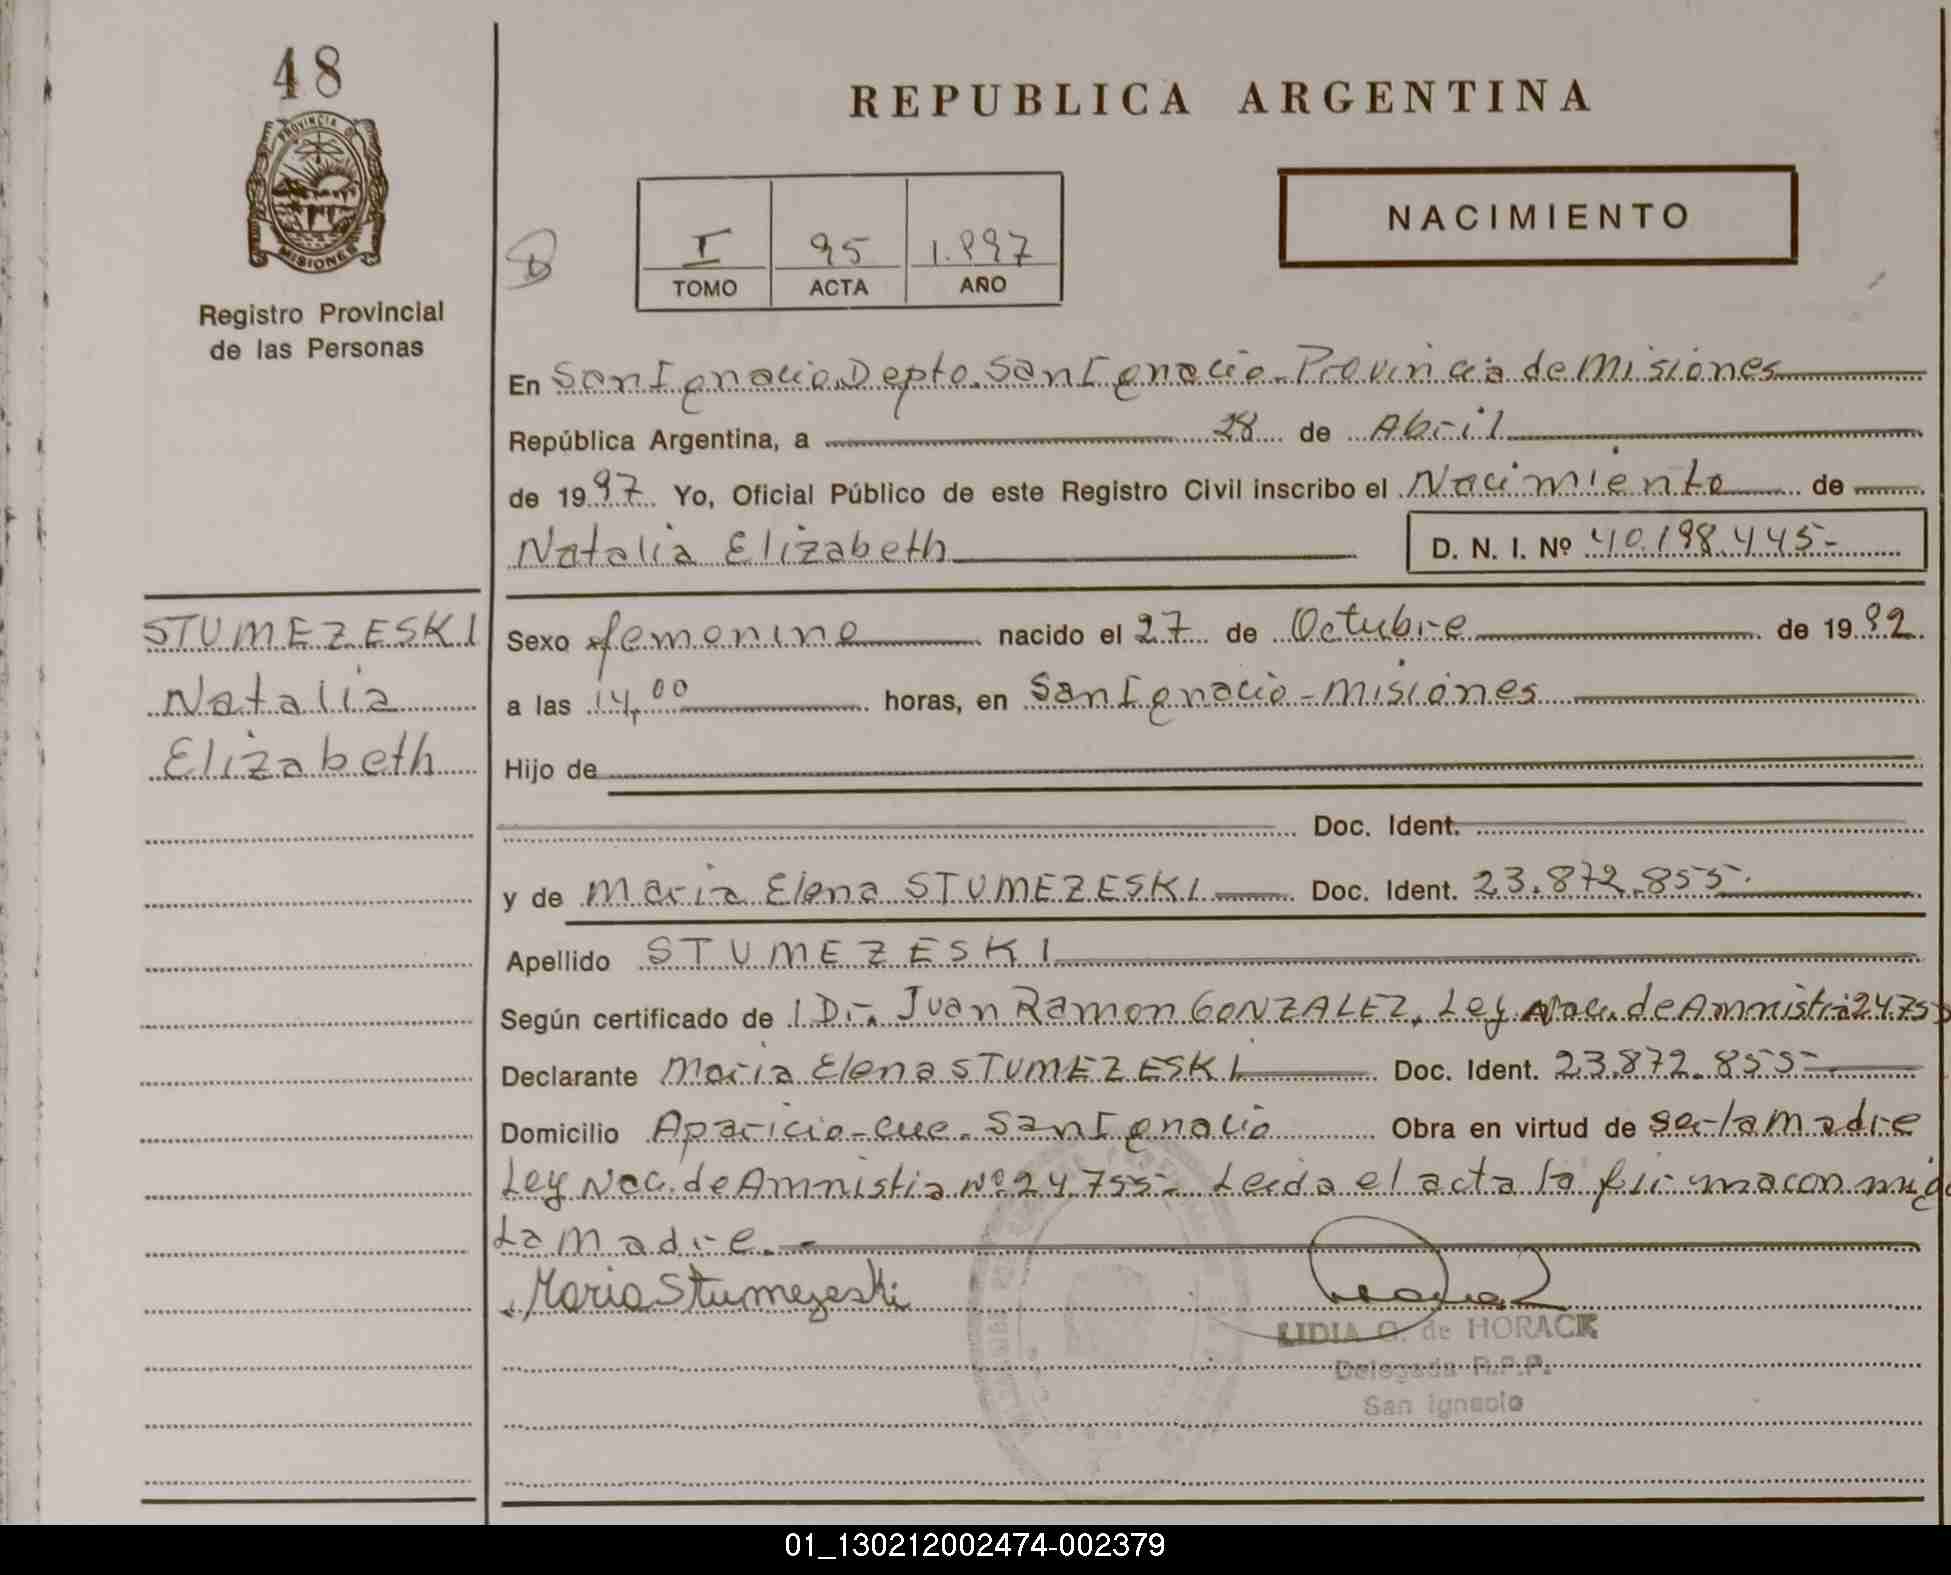 48
PROVINCIA DE
MISIONES
Registro Provincial
de las Personas
REPUBLICA ARGENTINA
I 95 1.997
TOMO ACTA AÑO
NACIMIENTO
En San Ignacio. Depto. San Ignacio - Provincia de Misiones
República Argentina, a 28 de Abril
de 1997 Yo, Oficial Público de este Registro Civil inscribo el Nacimiento de
Natalia Elizabeth D. N. I. Nº 40.198.445-
STUMEZESKI
Natalia
Elizabeth
Sexo femenino nacido el 27 de Octubre de 1992.
a las 14,00 horas, en San Ignacio - Misiones
Hijo de
Doc. Ident.
y de Maria Elena STUMEZESKI Doc. Ident. 23.872.855-
Apellido STUMEZESKI
Según certificado de 1 Dr. Juan Ramon GONZALEZ. Ley Nac. de Amnistia 24755
Declarante Maria Elena STUMEZESKI Doc. Ident. 23.872.855-
Domicilio Aparicio-cue - San Ignacio Obra en virtud de ser la madre
Ley Nac. de Amnistia Nº 24.755- Leida el acta la firma conmigo
La madre.-
Maria Stumezeski
LIDIA G. de HORACK
Delegada R.P.P.
San Ignacio
01_130212002474-002379